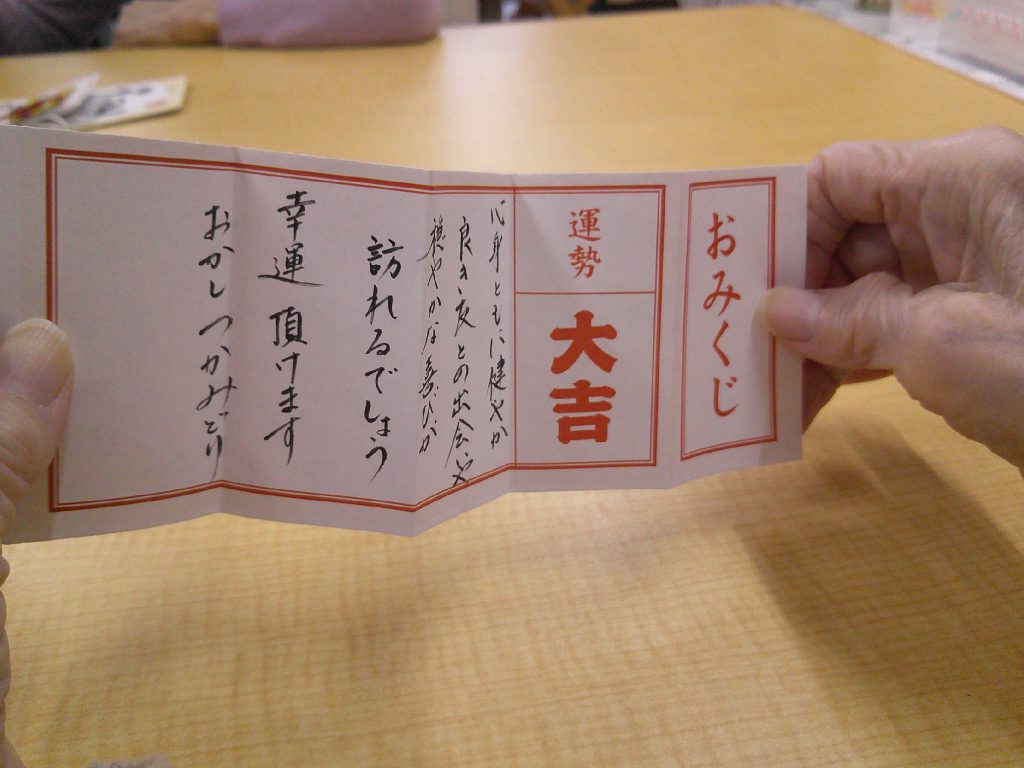 おみくじ
運勢
大吉
心身ともに健やか
良き友との出会いや
穏やかな喜びが
訪れるでしょう
幸運頂けます
おかしつかみどり